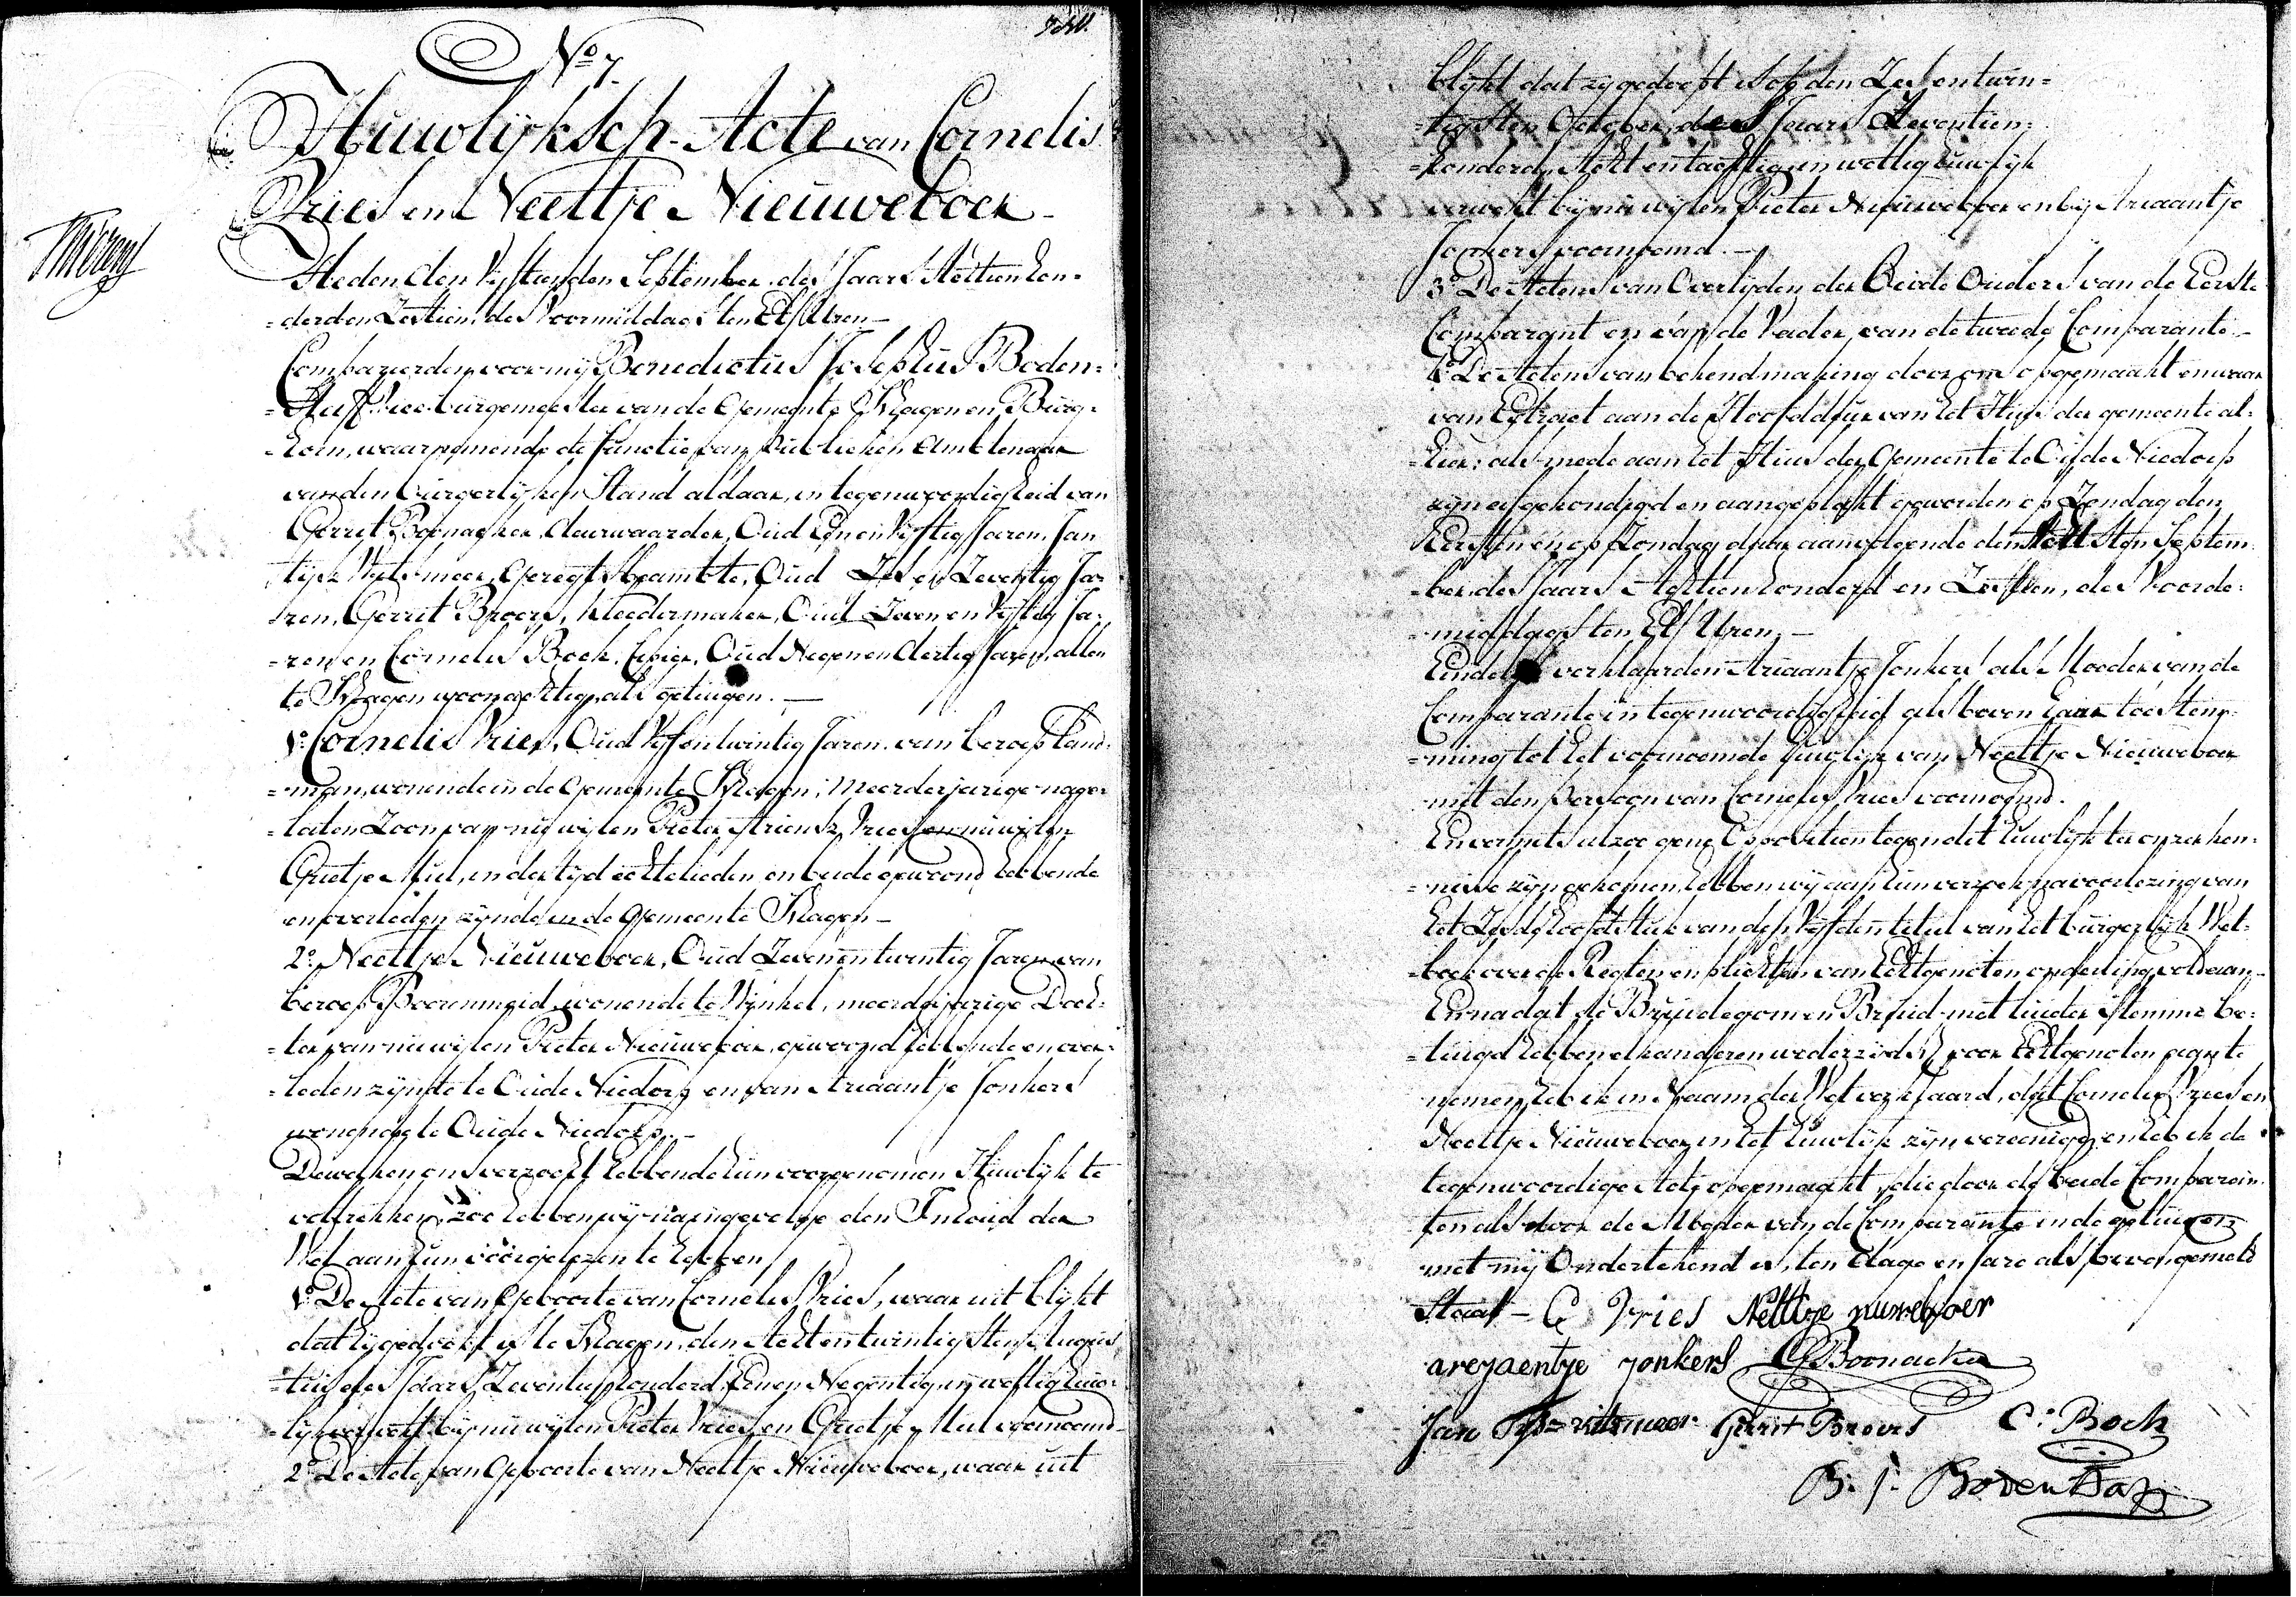 No 7.
Huwlijksch-Acte van Cornelis
Vries en Neeltje Nieuweboer
Heden den Vyftienden September des Jaars Achttien hon-
=derd en Zestien, des Voormiddags ten Elf Uren —
Compareerden voor mij Benedictus Josephus Boden-
Vice burgemeester van de Gemeente Schagen en Burg-
=horn, waarnemende de functie van Publieken Ambtenaar
van den burgerlijken Stand aldaar, in tegenwoordigheid van
Gerrit Boonacker, deurwaarder, Oud Een en Vyftig Jaren, Jan
Geregts beambte, Oud Zes en Zeventig Ja-
=ren, Gerrit Broers, Kleedermaker, Oud Zeven en Vyftig Ja-
=ren en Cornelis Boek, Oud Negen en dertig Jaren, allen
te Schagen woonachtig, als getuigen. —
1o Cornelis Vries, Oud Vyf en twintig Jaren, van beroep Land-
=man, wonende in de Gemeente Schagen, meerderjarige nage-
=laten Zoon van nu wijlen Pieter Ariensz Vries en nu wijlen
Grietje Mul, in der tijd echtelieden en beide gewoond hebbende
en overleden zijnde in de Gemeente Schagen —
2o Neeltje Nieuweboer, Oud Zeven en twintig Jaren van
beroep Boerenmeid, wonende te Winkel, meerderjarige Doch-
=ter van nu wijlen Pieter Nieuweboer, gewoond hebbende en over-
=leden zijnde te Oude Niedorp en van Ariaantje Jonkers
wonende te Oude Niedorp. —
Dewelken ons verzocht hebbende hun voorgenomen Huwlijk te
voltrekken, zoo hebben wij na ingevolge den Inhoud der
Wet aan hun voorgelezen te hebben
1o De Acte van Geboorte van Cornelis Vries, waar uit blijkt
dat hij gedoopt is te Schagen, den Acht en twintigsten Augus-
=tus des Jaars Zeventien honderd Een en Negentig, in wettig huw-
=lijk verwekt bij nu wijlen Pieter Vries en Grietje Mul voornoemd —
2o De Acte van Geboorte van Neeltje Nieuweboer, waar uit
blijkt dat zij gedoopt is op den Zes en twin-
=tigsten October des Jaars Zeventien-
=honderd Acht en tachtig, in wettig huwlijk
verwekt bij nu wijlen Pieter Nieuweboer en bij Ariaantje
Jonkers voornoemd. —
3o De Actens van Overlijden der Beide Ouders van de Eerste
Comparant en van de Vader van de tweede Comparante —
4o De Actens van bekendmaking door ons opgemaakt en waar
van Extract aan de Hoofddeur van het Huis der gemeente al-
=hier, als mede aan het Huis der Gemeente te Oude Niedorp
zijn afgekondigd en aangeplakt geworden op Zondag den
Eersten en op Zondag daar aanvolgende den Achtsten Septem-
=ber des Jaars Achttien honderd en Zestien, des Voorde-
=middags ten Elf Uren. —
verklaarde Ariaantje Jonkers als Moeder van de
Comparante in tegenwoordigheid als boven haar toestem-
=ming tot het voornoemde huwlijk van Neeltje Nieuweboer
met den persoon van Cornelis Vries voornoemd.
En vermits alzoo gene Oppositien tegen dit huwlijk ter onzer ken-
=nisse zijn gekomen, hebben wij aan hun verzoek na voorlezing van
het Zesde hoofdstuk van den Vyfden titel van het burgerlijk Wet-
=boek over de Regten en plichten van Echtgenoten onderling, voldaan —
En na dat de Bruidegom en Bruid met luider stemme be-
=tuigd hebben elkanderen wederzijds voor Echtgenoten aan te
nemen, heb ik in Naam der Wet verklaard, dat Cornelis Vries en
Neeltje Nieuweboer in het huwlijk zijn vereenigd, en heb ik de
tegenwoordige Acte opgemaakt, die door de beide Comparan-
ten als door de Moeder van de Comparante en de getuigen
met mij Ondertekend is, ten dage en jare als boven gemeld
Staat — C Vries Nelttje nuweboer
areyaentje yonkers G Boonacker
Jan Gerrit Broers C: Boek
B. J. Boden